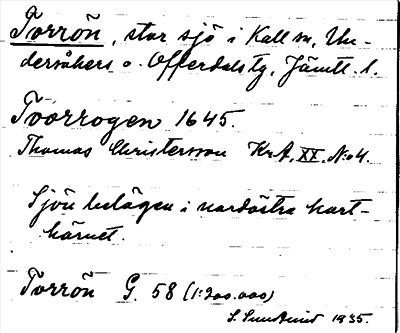 Torrön, stor sjö i Kall sn, Un-
dersåkers o. Offerdals tg, Jämtl. l.
Tvorrogen 1645.
Thomas Christersson KrA, XX. No 4.
Sjön belägen i nordöstra kart-
hörnet.
Torrön G. 58 (1:200.000)
S. Sundlind 1935.